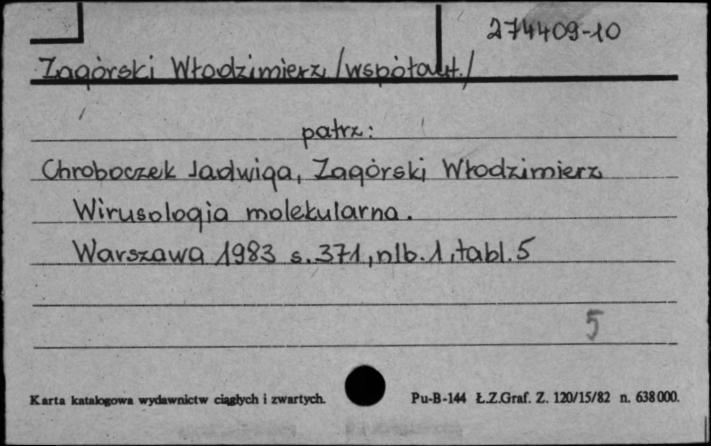 274409-10
Zagórski Włodzimierz /współaut./
patrz:
Chroboczek Jadwiga, Zagórski Włodzimierz
Wirusologia molekularna.
Warszawa 1983 s. 371, nlb. 1, tabl. 5
5
Karta katalogowa wydawnictw ciągłych i zwartych. Pu-B-144 Ł.Z.Graf. Z. 120/15/82 n. 638 000.